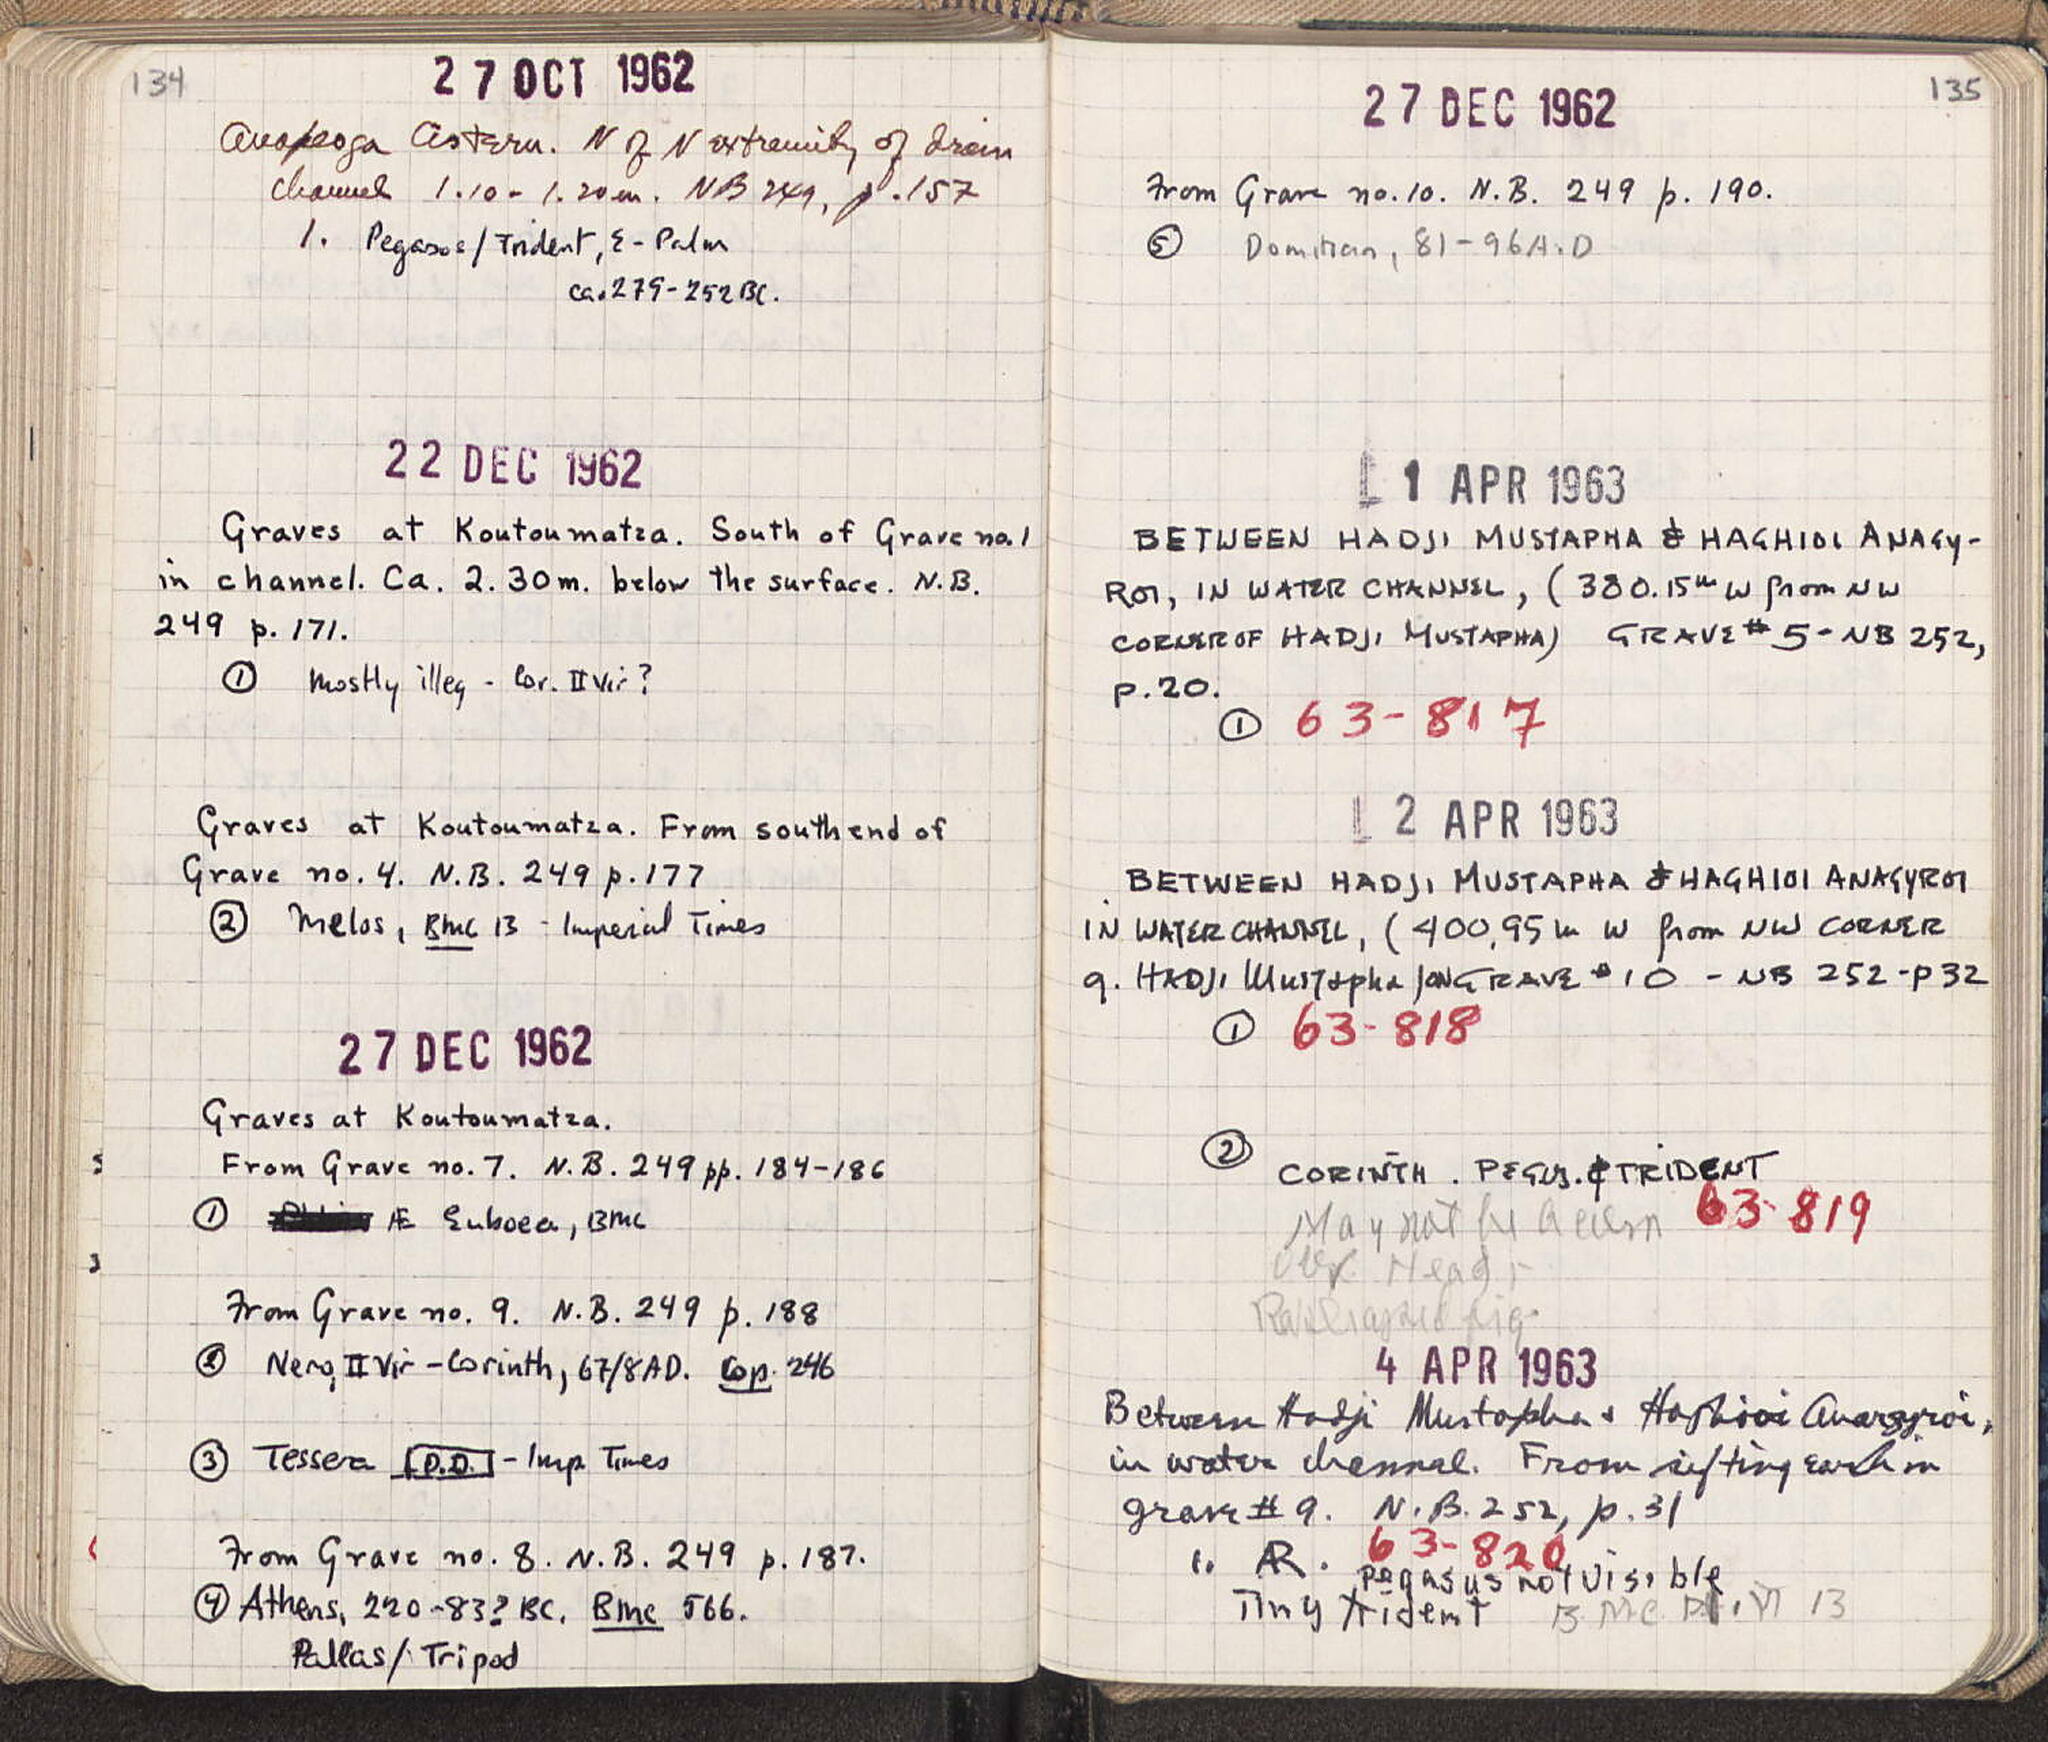 134
27 OCT 1962
Anaploga Cistern. N of N extremity of drain
channel 1.10 - 1.20m. NB 249, p.157
1. Pegasos/Trident, Σ - Palm
ca. 279-252 BC.
22 DEC 1962
Graves at Koutoumatza. South of Grave no. 1
in channel. Ca. 2.30m. below the surface. N.B.
249 p. 171.
① Mostly illeg - Cor. II Vir?
Graves at Koutoumatza. From south end of
Grave no. 4. N.B. 249 p. 177
② Melos, BMC 13 - Imperial Times
27 DEC 1962
Graves at Koutoumatza.
From Grave no. 7. N.B. 249 pp. 184-186
① Æ Euboea, BMC
From Grave no. 9. N.B. 249 p. 188
② Nero, II Vir - Corinth, 67/8 AD. Cop. 246
③ Tessera D.D. - Imp Times
From Grave no. 8. N.B. 249 p. 187.
④ Athens, 220-83? BC. BMC 566.
Pallas/Tripod
135
27 DEC 1962
From Grave no. 10. N.B. 249 p. 190.
⑤ Domitian, 81-96 A.D
1 APR 1963
BETWEEN HADJI MUSTAPHA & HAGHIOI ANAGY-
ROI, IN WATER CHANNEL, (380.15m W from NW
CORNER OF HADJI MUSTAPHA) GRAVE # 5 - NB 252,
p. 20.
① 63-817
2 APR 1963
BETWEEN HADJI MUSTAPHA & HAGHIOI ANAGYROI
IN WATER CHANNEL, (400,95 m W from NW CORNER
of HADJI Mustapha) ON GRAVE # 10 - NB 252 - p 32
① 63-818
② CORINTH. PEGUS. & TRIDENT
May not be 63-819
Head
4 APR 1963
Between Hadji Mustapha & Haghioi Anargyroi,
in water channel. From sifting earth in
grave # 9. N.B. 252, p. 31
1. AR. 63-820
Pegasus not visible
Tiny trident BMC Pl. VI 13